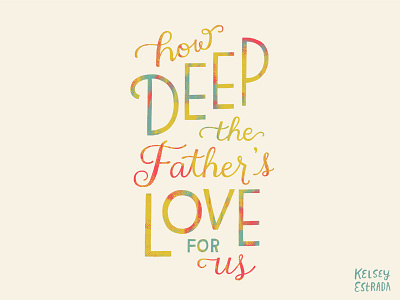 how
DEEP
the
Father's
LOVE
FOR
us
KELSEY
ESTRADA